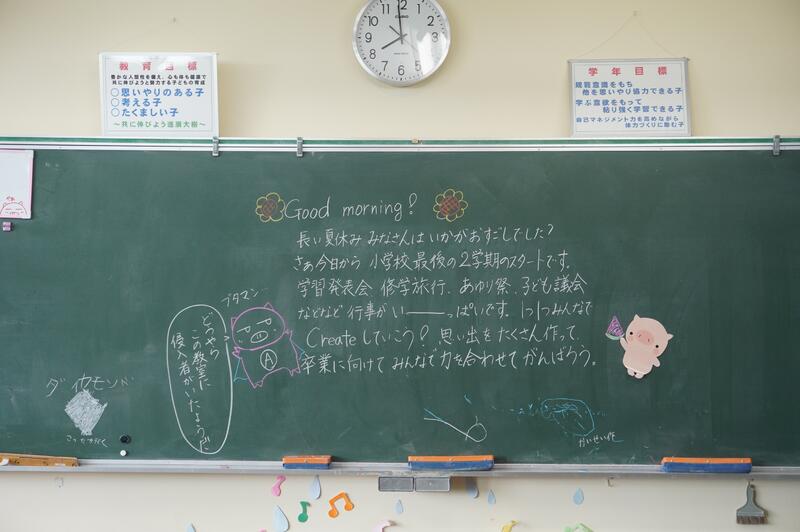 教育目標
豊かな人間性を備え、心も体も健康で
共に伸びようと努力する子どもの育成
○思いやりのある子
○考える子
○たくましい子
～共に伸びよう進展大樹～
12
1
2
3
4
5
6
7
8
9
10
11
CASIO
学年目標
規範意識をもち
他を思いやり協力できる子
学ぶ意欲をもって
粘り強く学習できる子
自己マネジメント力を高めながら
体力づくりに励む子
Good morning!
長い夏休み みなさんは いかがおすごしでした?
さあ今日から 小学校最後の2学期のスタートです。
学習発表会、修学旅行、あゆり祭、子ども議会
などなど 行事が い───っぱいです。1つ1つみんなで
Createしていこう! 思い出をたくさん作って、
卒業に向けて みんなで力を合わせて がんばろう。
ブタマン
A
どうやら
この教室に
侵入者がいたようだ
ダイヤモンド
かいせい作